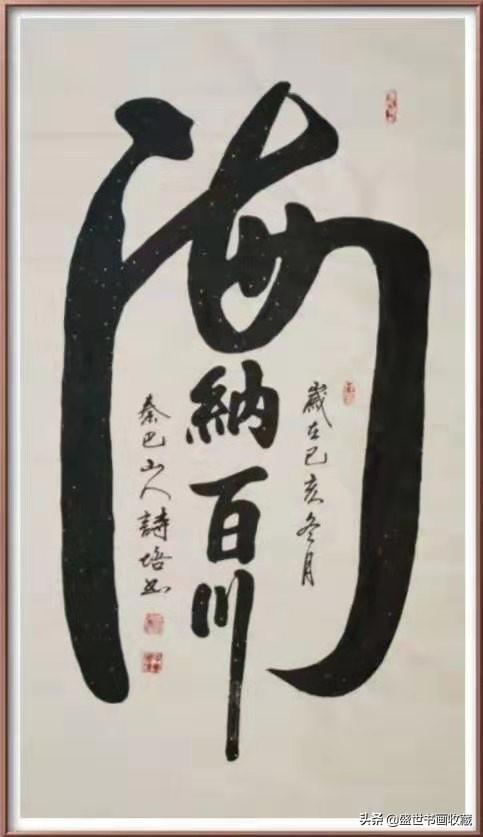 海納百川
歲在己亥冬月
秦巴山人詩培书
头条 @盛世书画收藏